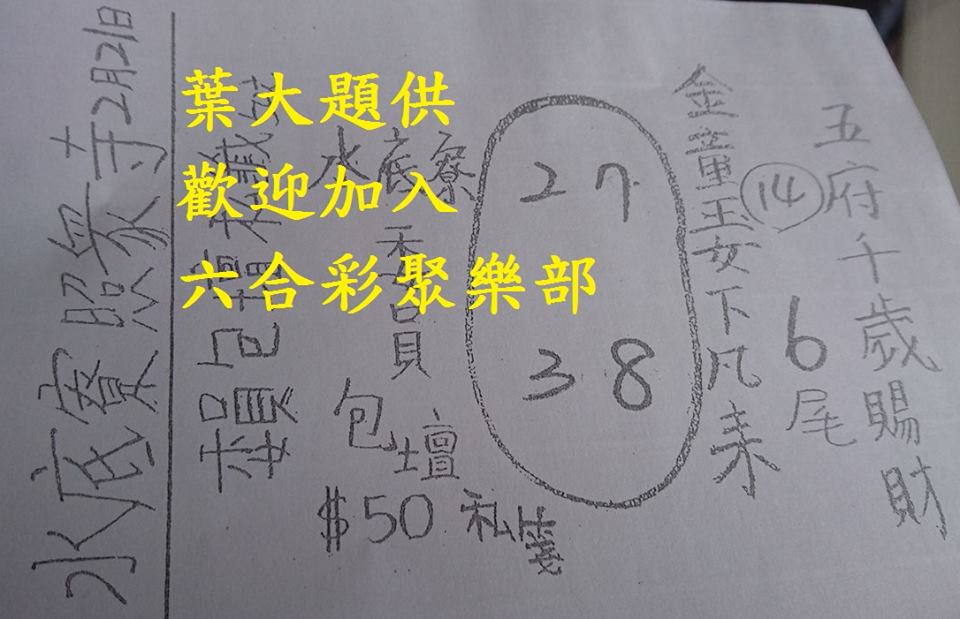 葉大題供
歡迎加入
六合彩聚樂部
五府千歲賜財
14
6尾
金童玉女下凡來
27
38
水底寮
包壇
$50 私箋
水底寮照眾寺2月21日